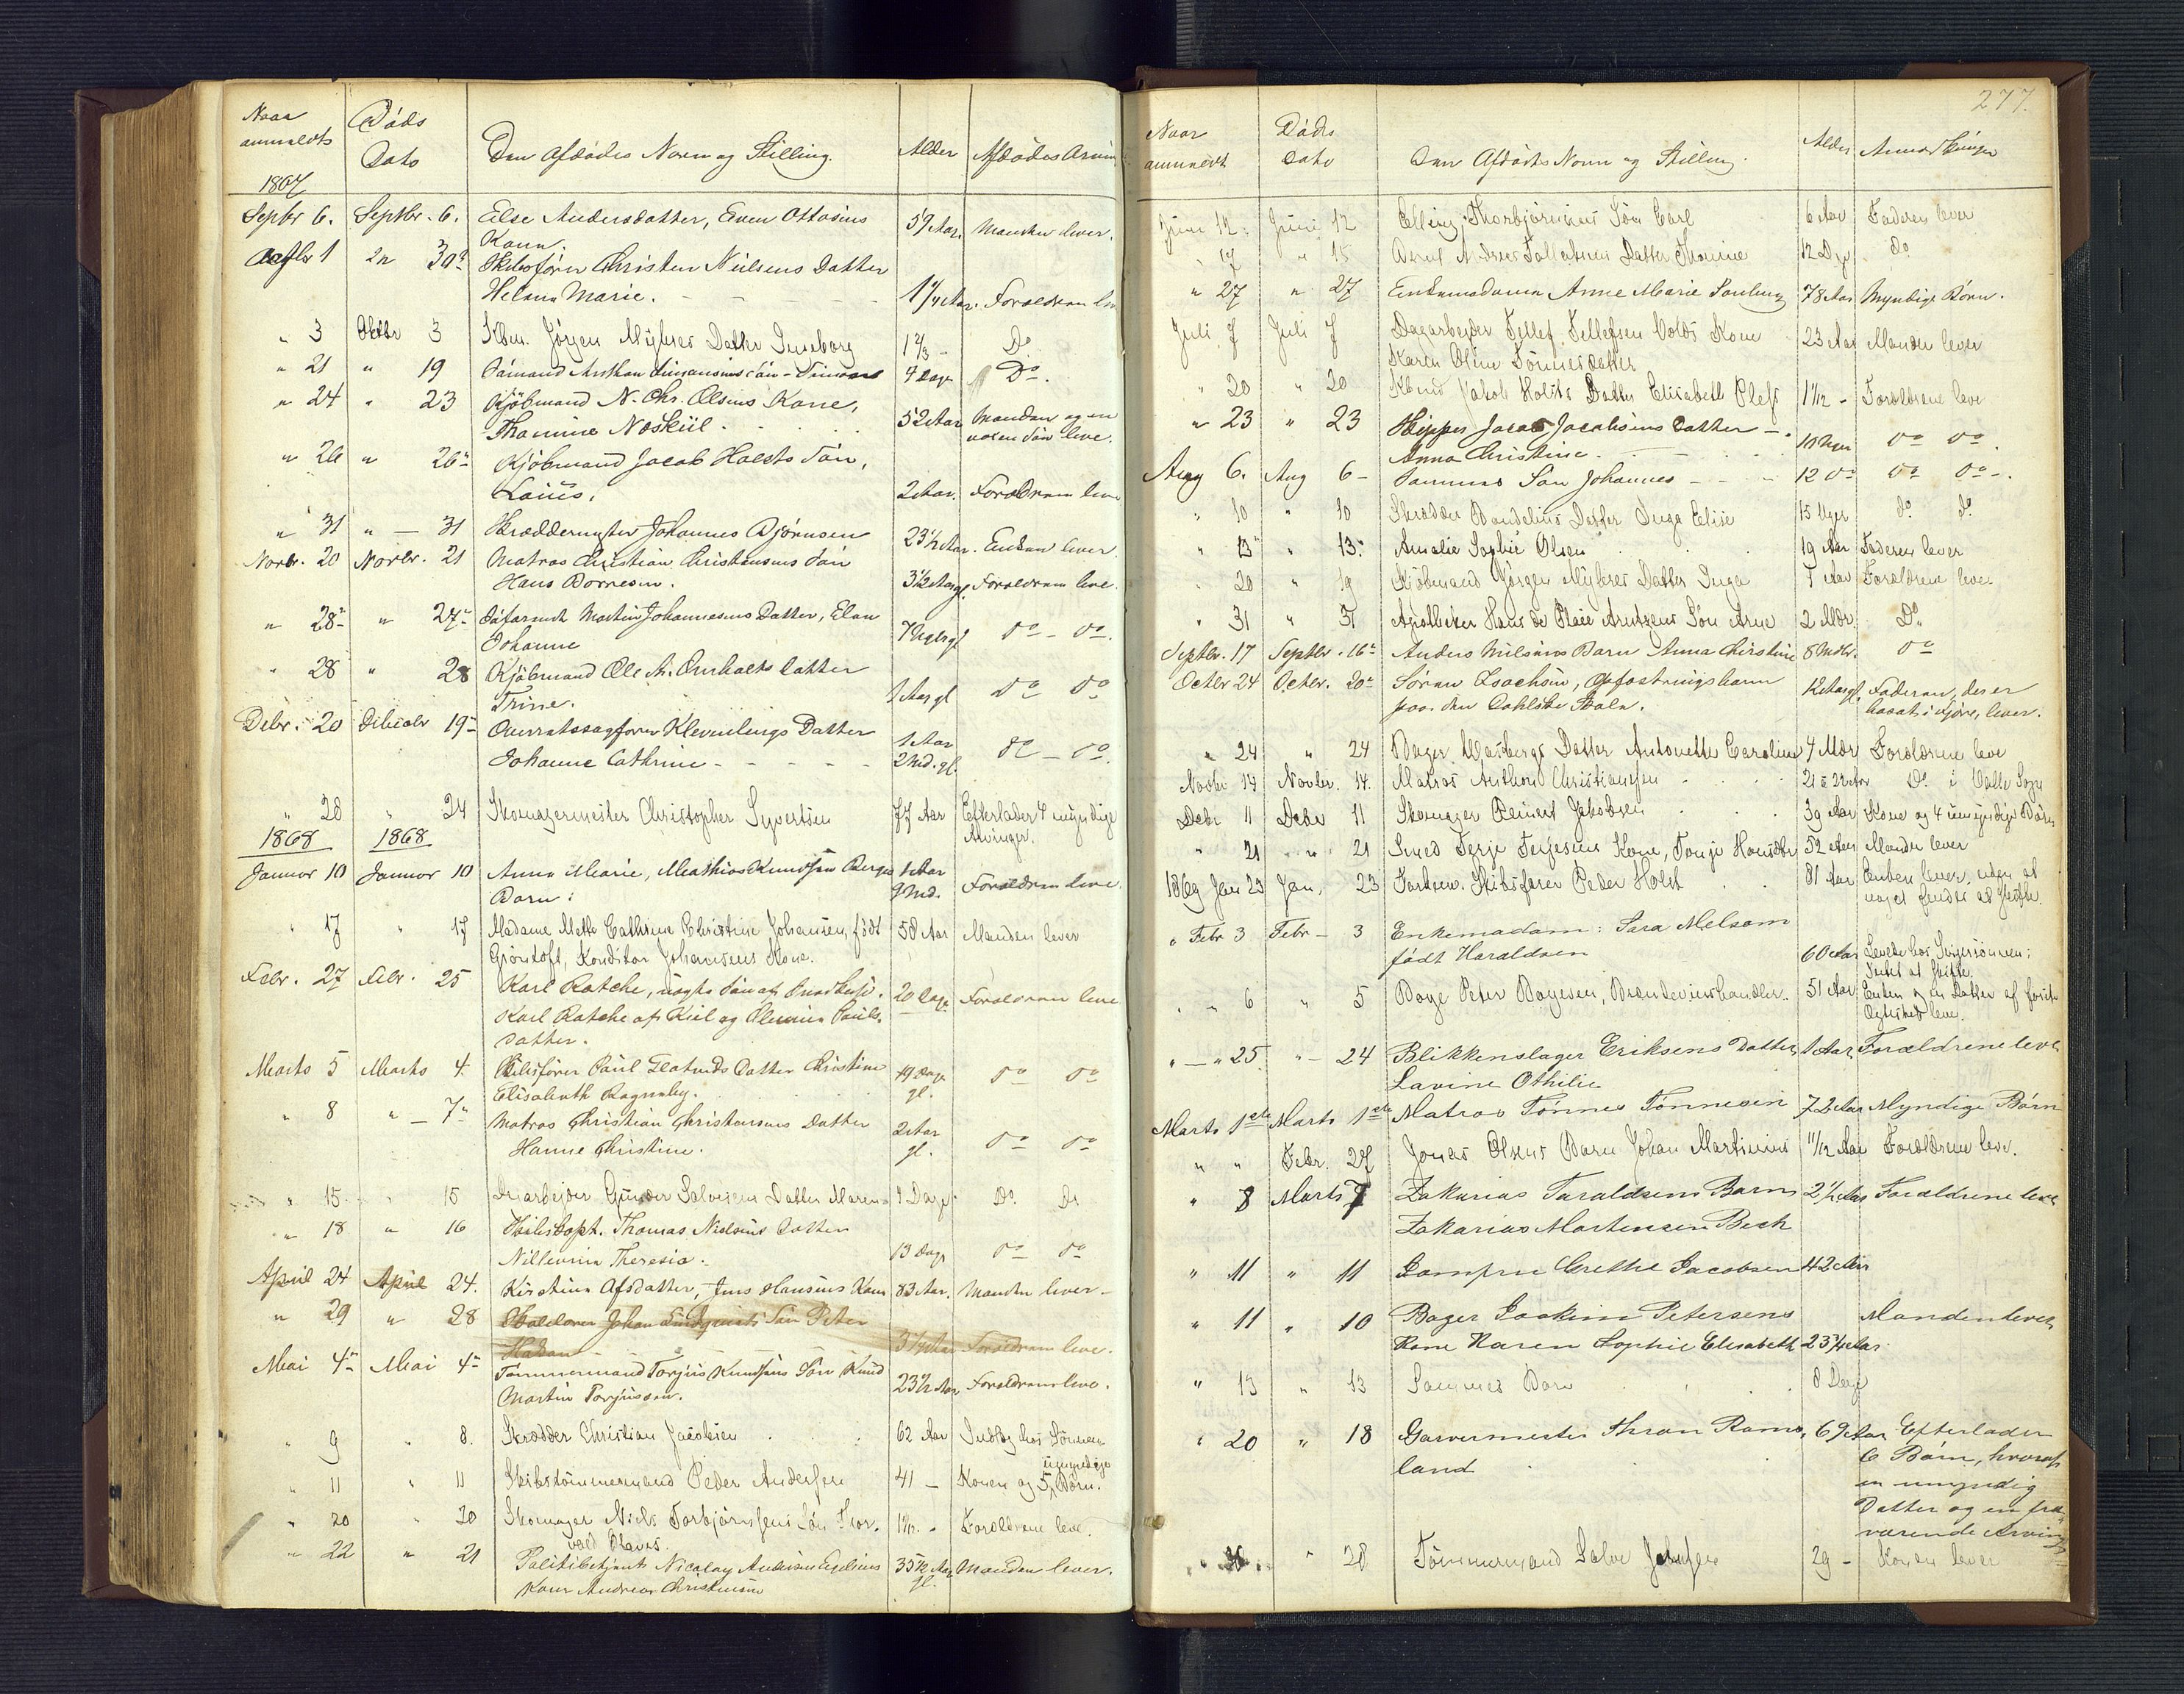 Naar
anmeldts
Døds
Dato
Den Afdødes Navn og Stilling.
Alder
Afdødes Arvin
1867
Septbr 6. Septbr. 6. Else Andersdatter, Even Ottosens 59 Aar. Manden lever.
Kone.
Octbr 1 30te Skibsfører Christen Nielsens Datter
Helena Marie. 1 1/4 Aar. Forældrene leve
" 3 Octbr 3 Kbm. Jørgen Myhres Datter Ingeborg 1 2/3 - Do.
" 21 " 19 4 Dage Do.
" 24 " 23 Kjøbmand N. Chr. Olsens Kone,
Thomine Næskiil. 52 Aar Manden og en
voxen Søn leve.
" 26 " 26te Kjøbmand Jacob Holsts Søn,
Louis. 2 Aar. Forældrene leve
" 31 " — 31 Skræddermester Johannes Bjørnsen 23 1/2 Aar. Enken lever.
Novbr. 20 Novbr. 21 Matros Christian Christensens Søn
Hans Børresen. 3 1/2 Aar gl. Forældrene leve.
" 28 " 27 Søfarende Martin Johannesens Datter, Elen
Johanne 7 Uger gl Do - Do.
" 28 " 28 Kjøbmand Ole A. Omholts Datter
Trine. 1 Aar gl Do Do
Debr. 20 Debr 19 Overretssagfører Klevenbergs Datter
Johanne Cathrine - - - - 1 Aar
2 Md. gl. Do - Do.
" 28 " 24 Skomagermester Christopher Syvertsen 77 Aar Efterlader 4 myndige
Arvinger.
1868 1868
Januar 10 Januar 10 Anne Marie, Mathias Knudsen Berges 1 Aar
Barn. 9 Md. Forældrene leve.
" 17 " 17 Madame Mette Cathrine Christine Johansen, født 58 Aar Manden lever
Grøntoft, Konditor Johansens Kone.
Febr. 27 Febr. 25 Karl Ratche, uægte Søn af
Karl Ratche af Kiel og Pauls- 20 Dage Forældrene leve
datter.
Marts 5 Marts 4. Skibsfører Paul Datter Christine 19 Dage
Elisabeth Ragnhey. gl. Do Do
" 8 " — 7 Matros Christian Christensens Datter
Hanne Christine. 2 Aar
gl. Do Do
" 15 " 15 Gunder Salvesens Datter Maren 9 Dage Do. Do
" 18 " 16 Skibscapt. Thomas Nielsens Datter
Theresia. 13 Dage Do Do
April 24 April 24. Kirstine Datter, Jens Hansens Kone 83 Aar. Manden lever -
" 29 " 28 Johan Søn Peter
Hakon 3 1/2 Aar Forældrene leve.
Mai 4 Mai 4 Tømmermand Torjus Knudsens Søn Knud
Martin Torjussen. 23 1/2 Aar. Forældrene leve.
" 9 " 8. Skrædder Christian Jacobsen 62 Aar hos Sønnen
" 11 " 11 Skibstømmermand Peder Andersen 41 - Konen og 5 umyndige Børn.
" 20 " 20 Skomager Niels Torbjørnsens Søn Thor- Forældrene leve.
vald Olaus.
" 22 " 21 Politibetjent Nicolay Kone Andrea Christensen 35 1/2 Aar
gl. Manden lever.
277.
Naar
anmeldt
Døds
Dato
Den Afdødes Navn og Stilling.
Alder
Juni 12. Juni 12 Elling Thorbjørnsens Søn Carl 6 Aar Faderen lever
" 17 " 15 Datter Thomine 12 Dge Do
" 27 " 27 Enkemadame Anne Marie 78 Aar Myndige Børn.
Juli 7 Juli 7 Dagarbejder Tellef Tellefsen Volds Kone 23 Aar Manden lever
Karen Oline Tønnesdatter
" 20 " 20 Kbmd Jakob Holsts Datter Elisabeth 1 1/12 - Forældrene leve
" 23 " 23 Skipper Jacob Jacobsens Datter
Anna Christine. 10 Uger Do Do.
Aug 6. Aug 6 - Sammes Søn Johannes 12 Do Do Do.
" 10 " 10 Skrædder Datter Inga Elise 15 Uger do do
" 13 " 13. Amalie Sophie Olsen 19 Aar Faderen lever
" 20 " 19 Kjøbmand Jørgen Myhres Datter Inga 7 Aar Forældrene leve.
" 31 " 31 Apotheker Hans de Place Arntzens Søn Arne 2 Mdr. Do
Septbr. 17 Septbr. 16 Anders Nilsens Barn Anna Christine 8 Mdr. Do
Octbr 24 Octbr. 20 Søren Isachsen, Opfostringsbarn
paa den Dahlske Skole. 12 Aar gl. Faderen, der er
bosat i Fjære, lever.
" 24 " 24 Bager Datter Antonette Caroline 4 Mdr Forældrene leve
Novbr 14 Novbr. 14. Matros Anthon Christiansen 21 à 22 Aar Do. i Valle Sogn
Debr 11 Debr 11 Skomager Reinert Jakobsen 39 Aar Kone og 4 umyndige Børn
" 21 " 21 Smed Terje Terjesens Kone, Tonje Hansdtr 52 Aar Manden lever
1869 Jan 23 Jan. 23 Forhenv. Skibsfører Peder Holst 81 Aar Enken lever, uden at
noget findes at skifte.
" Febr 3 Febr - 3 Enkemadam: Sara Melsom
født Haraldsen 60 Aar Levede hos Svigersønnen;
Intet at skifte.
" " 6 " 5 Boye Peter Boyesen, Brændeviinshandler. 51 Aar Enken og en Datter af første
Ægteskab leve.
" — " 25. " — 24 Blikkenslager Eriksens Datter, 1 Aar, Forældrene leve
Lavine Othilie
Marts 1ste Marts 1ste Matros Tønnes Tønnesen 72 Aar Myndige Børn
" " Febr. 27 Jonas Olsens Barn Johan Martinius 11/12 Aar Forældrene leve.
" 8 Marts 7 Zakarias Taraldsens Barn 2 1/2 Aar Forældrene leve
Zakarias Martensen Bech
" 11 " 11 Jomfru Grethe Jacobsen 42 Aar
" 11 " 10 Bager Joakim Petersens Manden lever
Kone Karen Sophie Elisabeth 23 3/4 Aar
" 13 " 13 Sammes Barn 8 Dage
" 20 " 18 Garvermester Thron Rams- 69 Aar Efterlader
land 6 Børn, hvoraf
en umyndig
Datter og en fra-
værende Arving
" " 28 Tømmermand Salve 29 - Konen lever